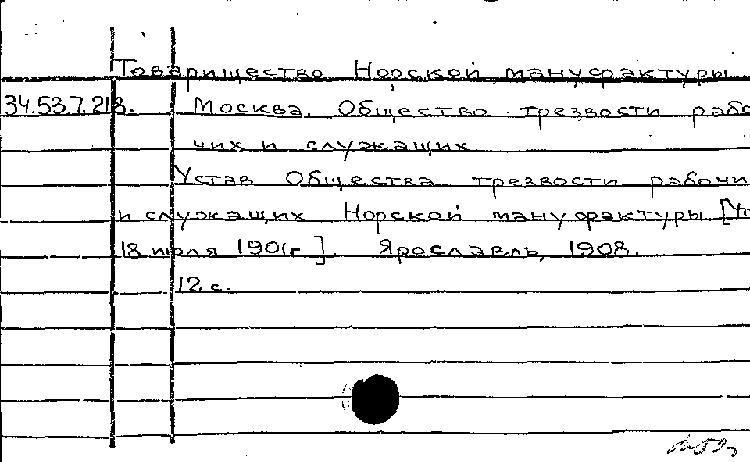 Товарищество Норской мануфактуры
34.53.7.218. Москва. Общество трезвости рабо
чих и служащих
Устав Общества трезвости рабочи
и служащих Норской мануфактуры [Ут
18 июля 1901г.]. Ярославль, 1908.
12 с.